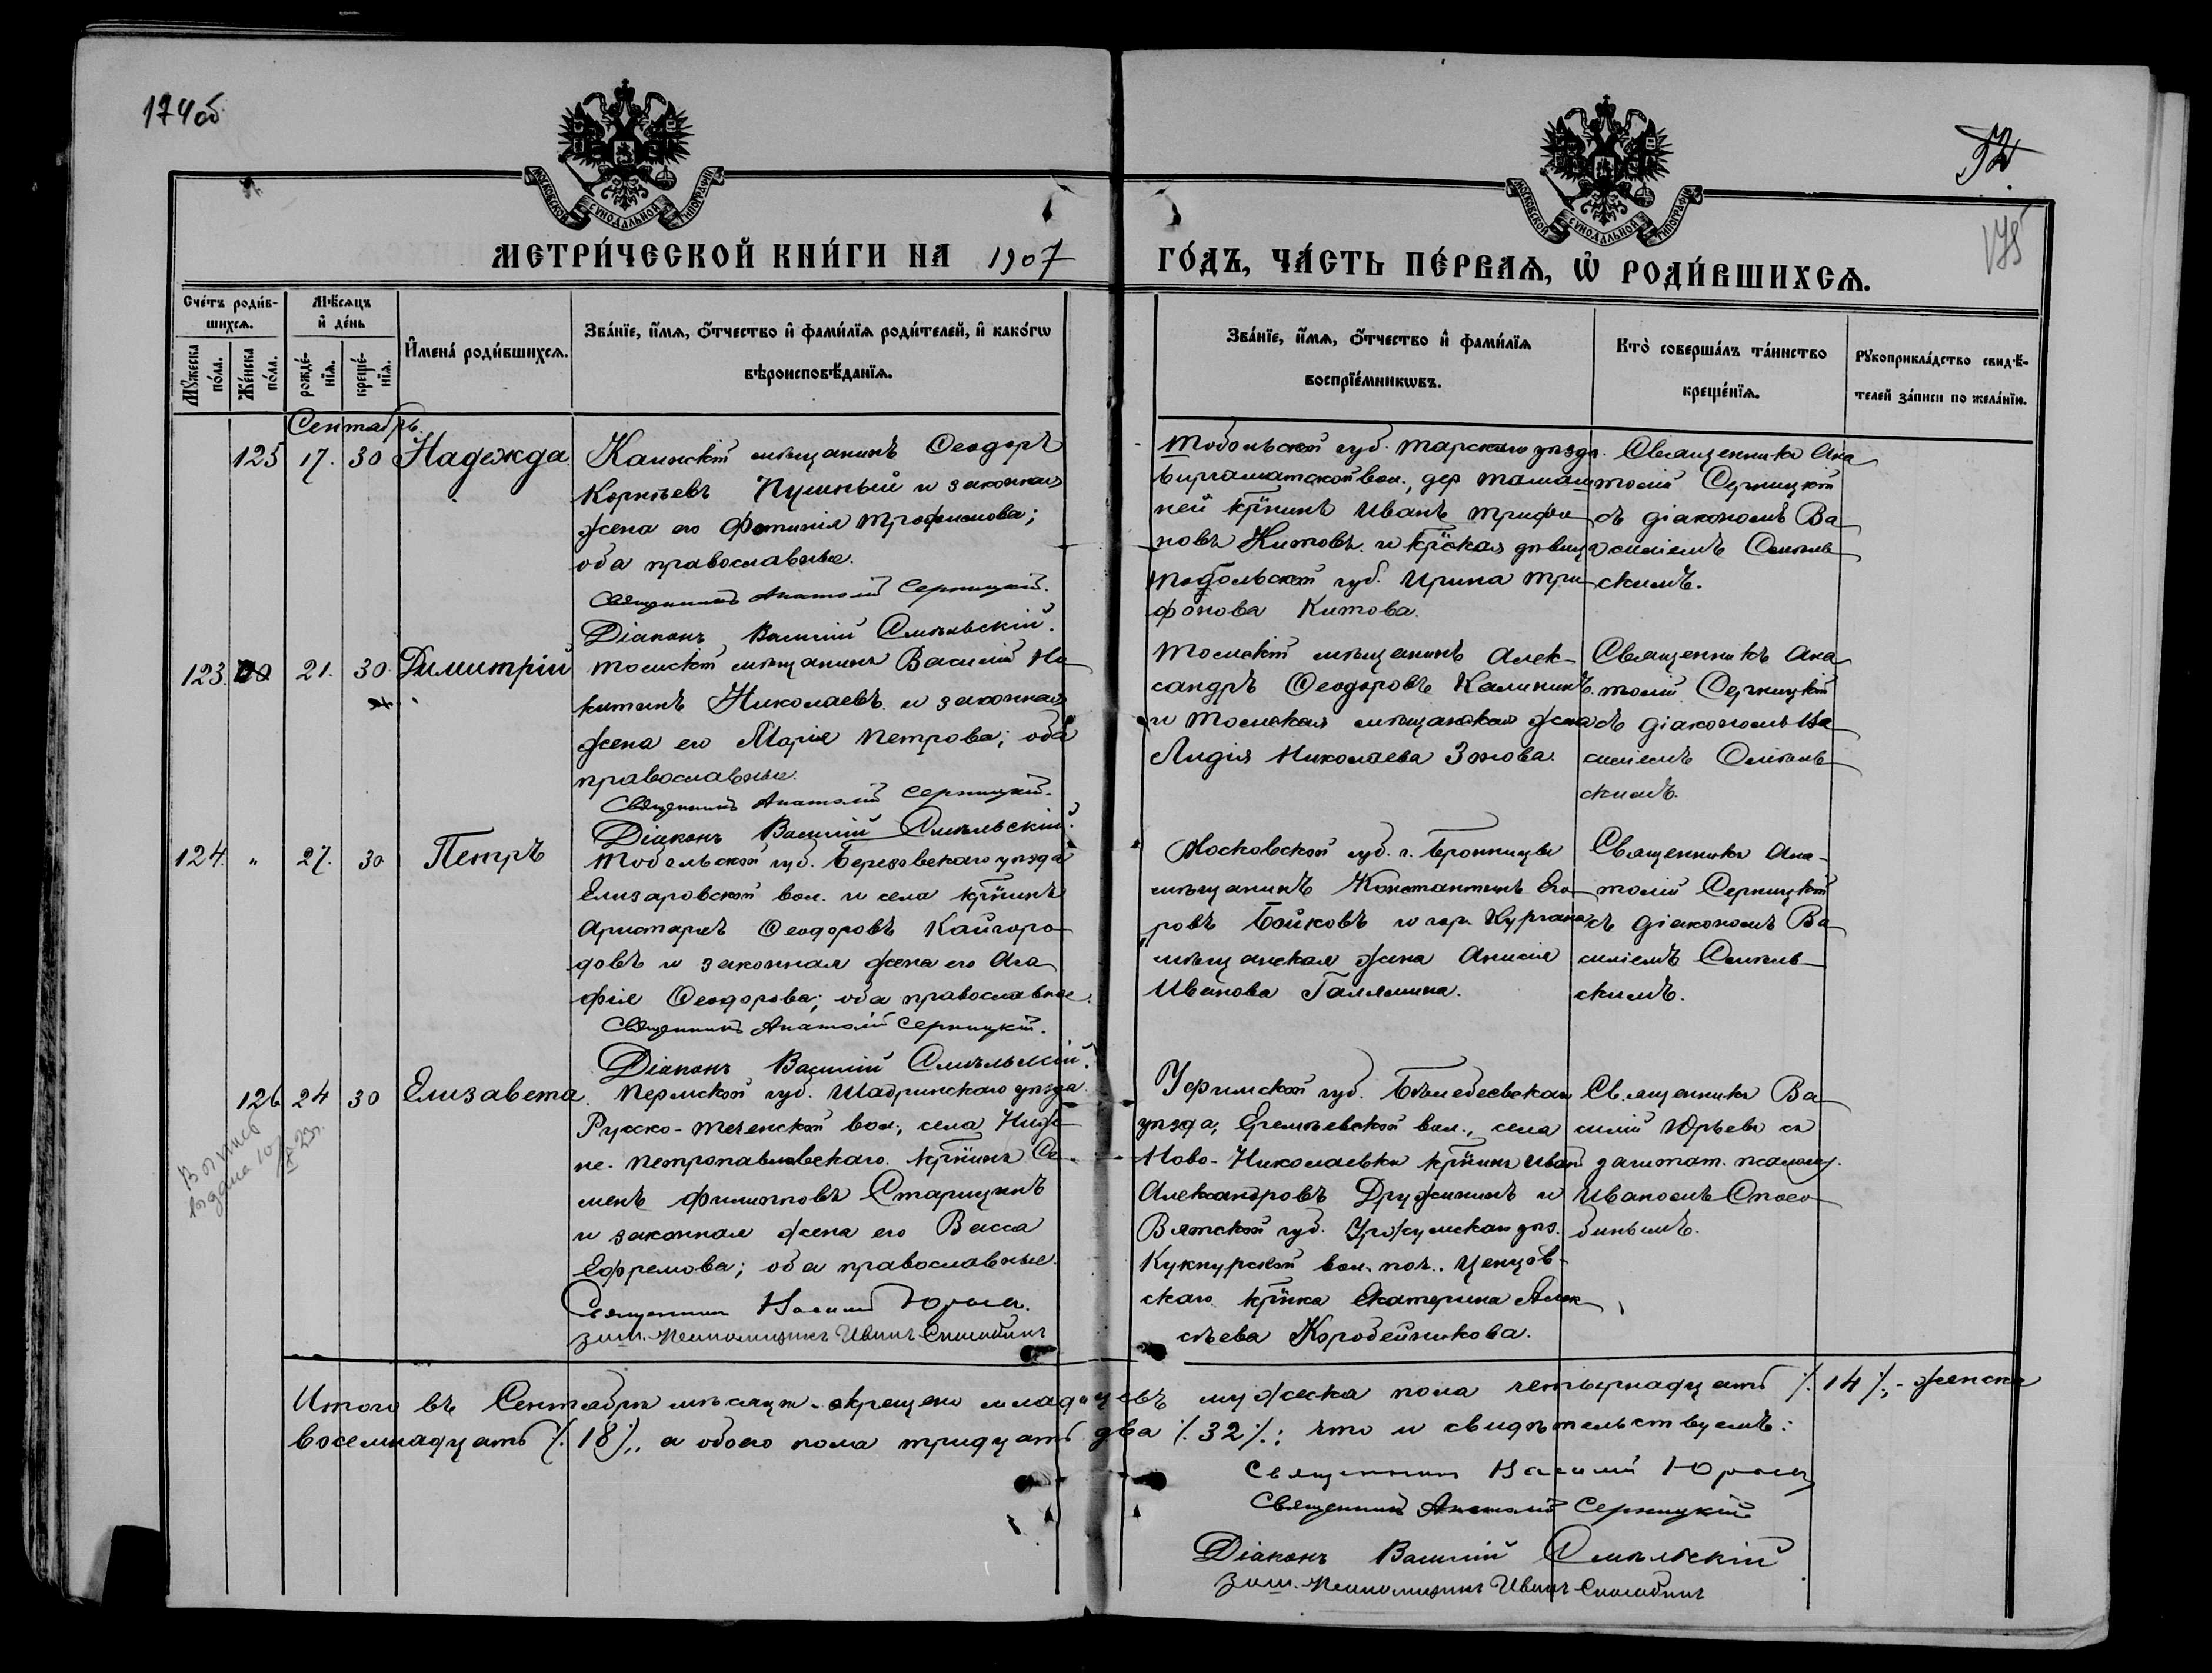 174об
МОСКОВСКОЙ СѴНОДАЛЬНОЙ ТИПОГРАФІИ
МОСКОВСКОЙ СѴНОДАЛЬНОЙ ТИПОГРАФІИ
175
МЕТРИ́ЧЕСКОЙ КНИ́ГИ НА 1907 ГО́ДЪ, ЧА́СТЬ ПЕ́РВАѦ, Ѡ҆ РОДИ́ВШИХСѦ.
Сче́тъ роди́в-
шихсѧ.
Мꙋ́жеска по́ла.
Же́нска по́ла.
Мѣ́сѧцъ
и҆ де́нь
рожде́-
нїѧ.
креще́-
нїѧ.
И҆мена́ роди́вшихсѧ.
Зва́нїе, и҆́мѧ, о҆́тчество и҆ фами́лїѧ роди́телей, и҆ како́гѡ
вѣроисповѣ́данїѧ.
Зва́нїе, и҆́мѧ, о҆́тчество и҆ фами́лїѧ
воспрїе́мникѡвъ.
Кто̀ соверша́лъ та́инство
креще́нїѧ.
Рꙋкоприкла́дство свидѣ́-
телей за́писи по жела́нїю.
Сентябрь.
125 17. 30 Надежда.
Каинскій мѣщанинъ Ѳеодоръ
Корнѣевъ Пушный и законная
жена его Фотинія Трофимова;
оба православные.
Священникъ Анатолій Серницкій.
Діаконъ Василій Смѣльскій.
Тобольской губ. Тарскаго уѣзда.
вол., дер
ней кр̃нинъ Иванъ Трифо
новъ Китовъ и кр̃ская дѣвица
Тобольской губ. Ирина Три
фонова Китова.
Священникъ Ана
толій Серницкій
съ діакономъ Ва
силіемъ Смѣль
скимъ.
123. 21. 30 Димитрій
Томскій мѣщанинъ Василій Ни
китинъ Николаевъ и законная
жена его Марія Петрова; оба
православные.
Священникъ Анатолій Серницкій.
Діаконъ Василій Смѣльскій.
Томскій мѣщанинъ Алек-
сандръ Ѳеодоровъ Калининъ
и Томская мѣщанская жена
Лидія Николаева Зонова.
Священникъ Ана
толій Серницкій
съ діакономъ Ва
силіемъ Смѣль
скимъ.
124. " 27. 30 Петръ
Тобольской губ. Березовскаго уѣзда
Елизаровской вол. и села кр̃нинъ
Аристархъ Ѳеодоровъ Кайгоро
довъ и законная жена его Ага
фія Ѳеодорова; оба православные.
Священникъ Анатолій Серницкій.
Діаконъ Василій Смѣльскій.
Московской губ. г. Бронницы
мѣщанинъ Константинъ Его
ровъ Бойковъ и гор. Кургана
мѣщанская жена Анисія
Иванова Галямина.
Священникъ Ана-
толій Серницкій
съ діакономъ Ва
силіемъ Смѣль
скимъ.
126 24 30 Елизавета.
Выпись
выдана 10/X 23 г.
Пермской губ. Шадринскаго уѣзда
Русско-Теченской вол., села Ниж
не-Петропавловскаго кр̃нинъ Се
менъ Филиповъ Старицинъ
и законная жена его Васса
Ефремова; оба православные.
Священникъ Василій Юрьевъ.
заш. псаломщикъ Иванъ Способинъ
Уфимской губ. Белебеевскаго
уѣзда, Еремѣевской вол., села
Ново-Николаевки кр̃нинъ Иванъ
Александровъ Дружининъ и
Вятской губ. Уржумскаго уѣз.
Кукнурской вол. поч. Ценцов-
скаго кр̃нка Екатерина Алек
сѣева Коробейникова.
Священникъ Ва
силій Юрьевъ съ
зашттат. псаломщ.
Иваномъ Спосо
бинымъ.
Итого въ Сентябрѣ мѣсяцѣ окрещено младенцевъ мужеска пола четырнадцать ./.14./. - женска
восемнадцать ./.18./., а обоего пола тридцать два ./.32./.; что и свидѣтельствуемъ:
Священникъ Василій Юрьевъ
Священникъ Анатолій Серницкій
Діаконъ Василій Смѣльскій
заш. псаломщикъ Иванъ Способинъ